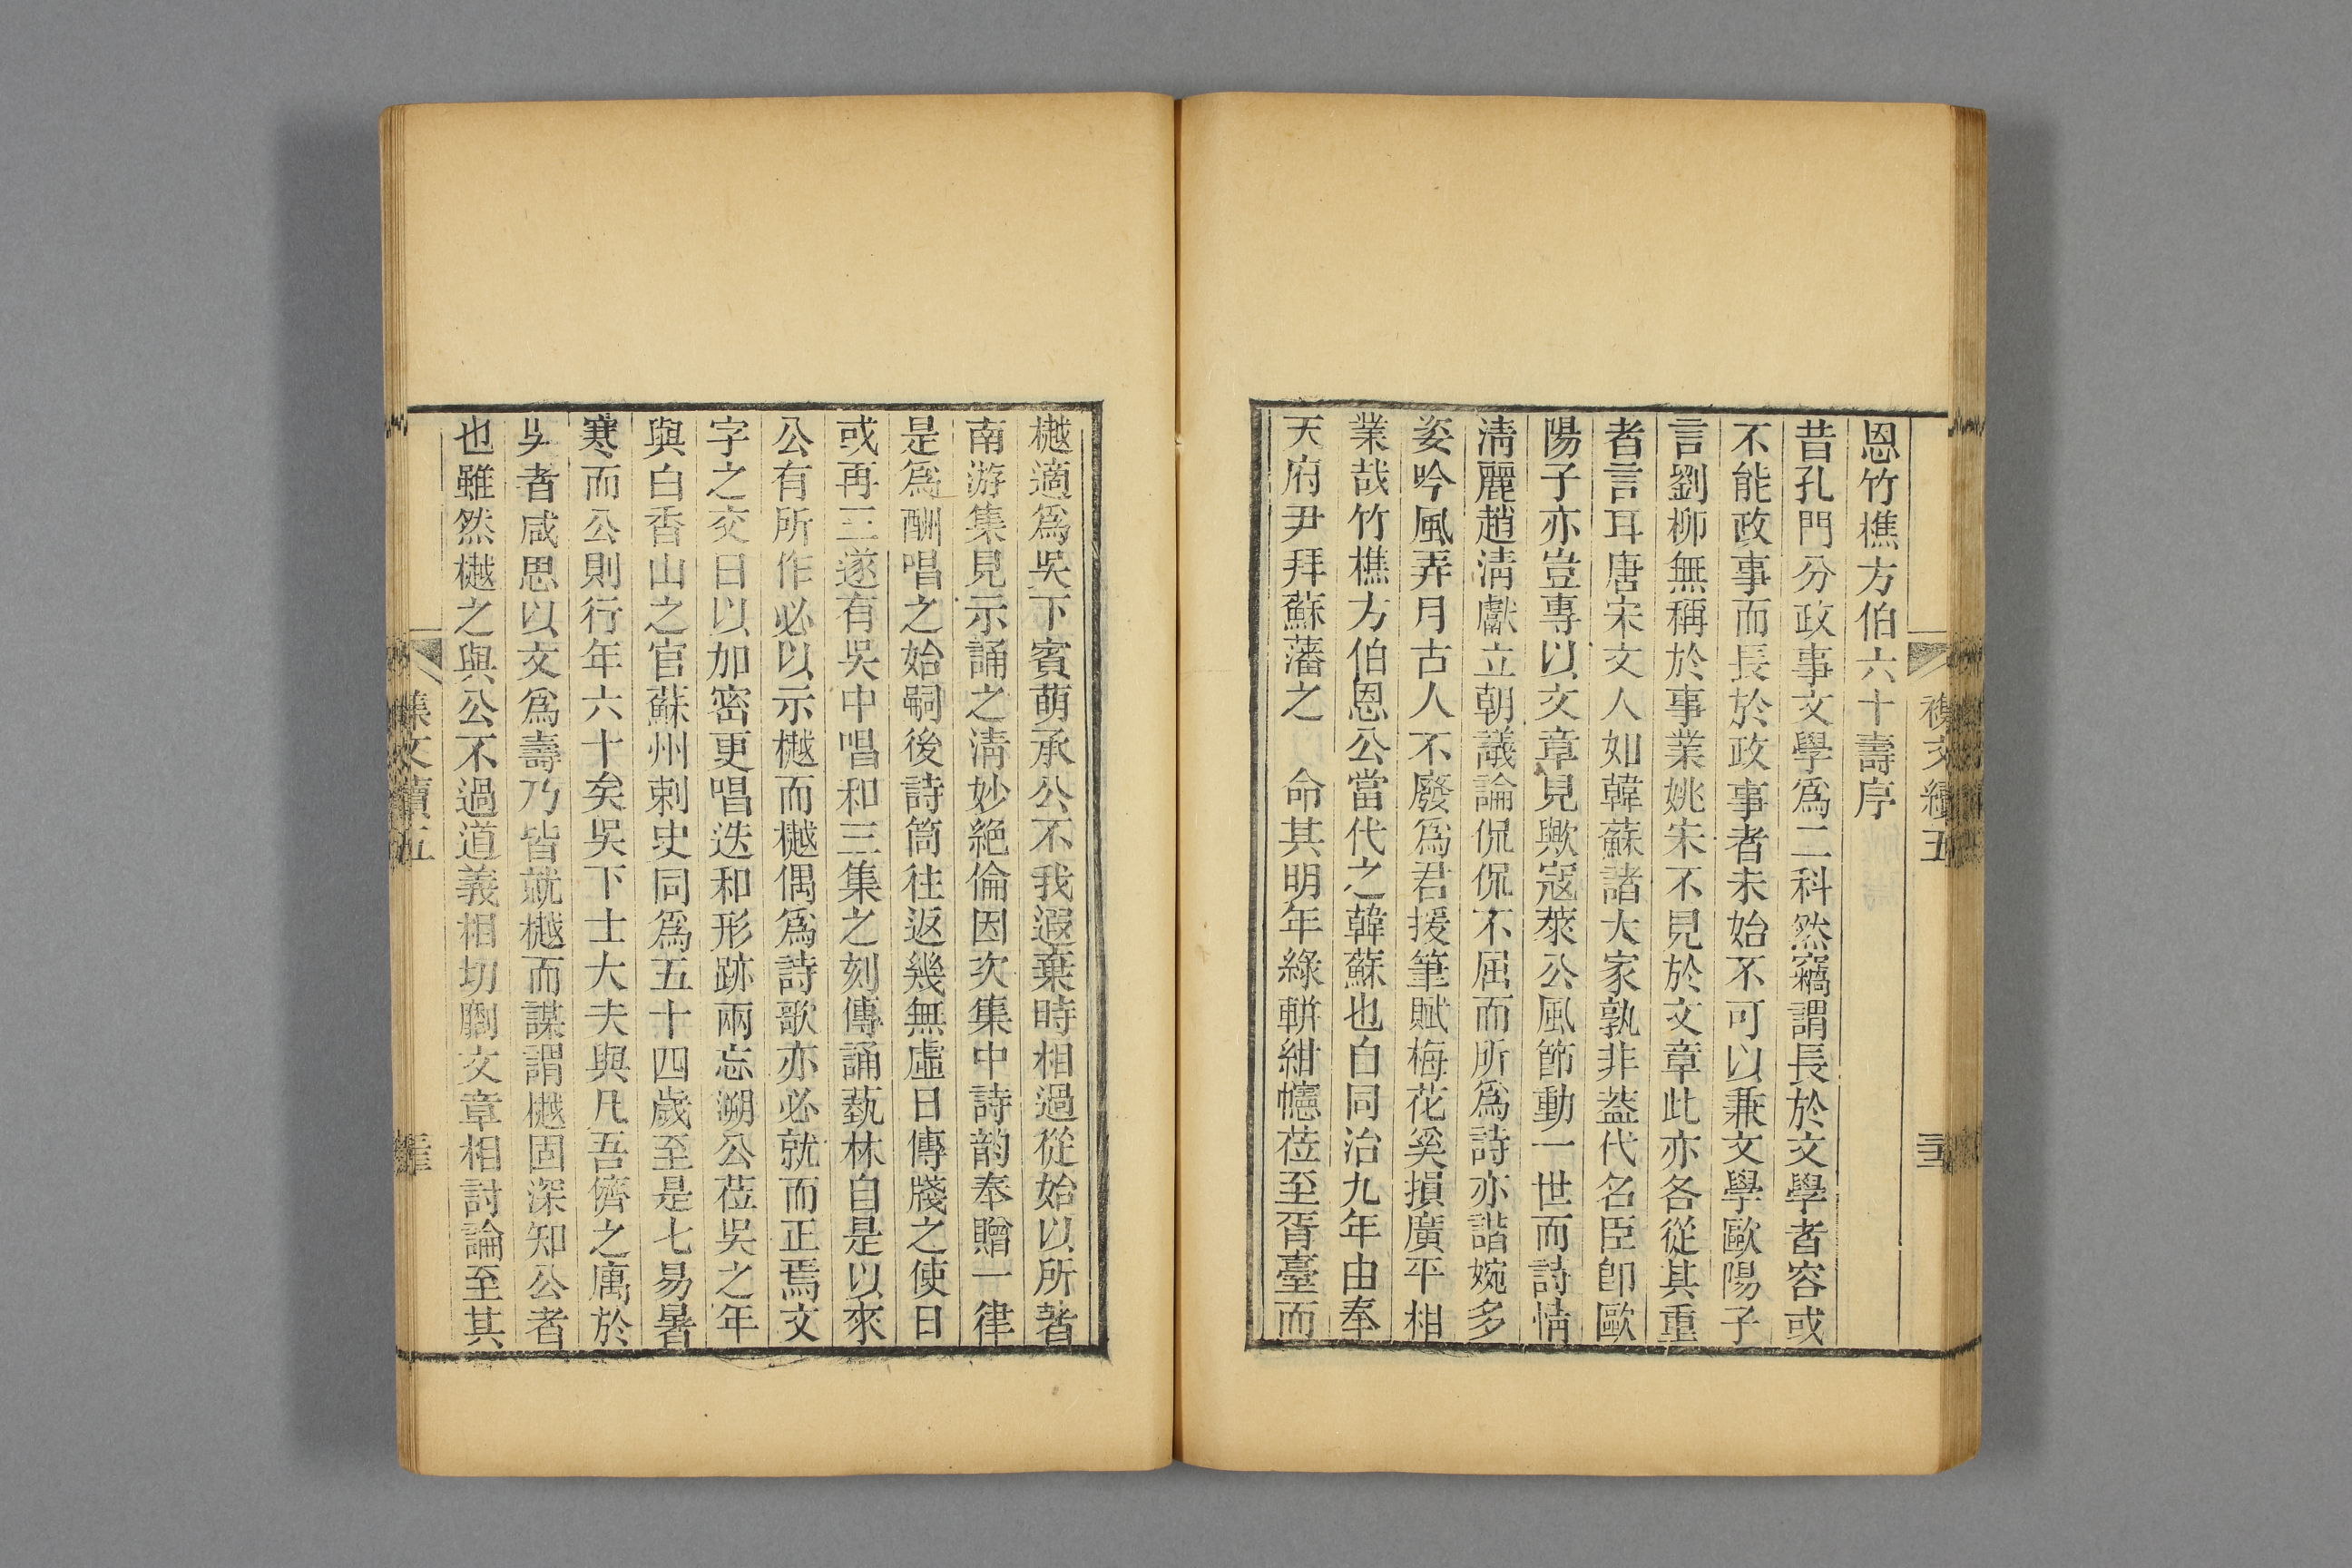 恩竹樵方伯六十壽序
昔孔門分政事文學爲二科然竊謂長於文學者容或
不能政事而長於政事者未始不可以兼文學歐陽子
言劉柳無稱於事業姚宋不見於文章此亦各從其重
者言耳唐宋文人如韓蘇諸大家孰非葢代名臣卽歐
陽子亦豈專以文章見歟寇萊公風節動一世而詩情
淸麗趙淸獻立朝議論侃侃不屈而所爲詩亦諧婉多
姿吟風弄月古人不廢爲君援筆賦梅花奚損廣平相
業哉竹樵方伯恩公當代之韓蘇也自同治九年由奉
天府尹拜蘇藩之 命其明年綠軿紺幰莅至胥臺而
樾適爲吳下賓萌承公不我遐棄時相過從始以所著
南游集見示誦之淸妙絶倫因次集中詩韵奉贈一律
是爲酬唱之始嗣後詩筒往返幾無虛日傳牋之使日
或再三遂有吳中唱和三集之刻傳誦埶林自是以來
公有所作必以示樾而樾偶爲詩歌亦必就而正焉文
字之交日以加密更唱迭和形跡兩忘溯公莅吳之年
與白香山之官蘇州剌史同爲五十四歲至是七易暑
寒而公則行年六十矣吳下士大夫與凡吾儕之庽於
吳者咸思以文爲壽乃皆就樾而謀謂樾固深知公者
也雖然樾之與公不過道義相切劘文章相討論至其